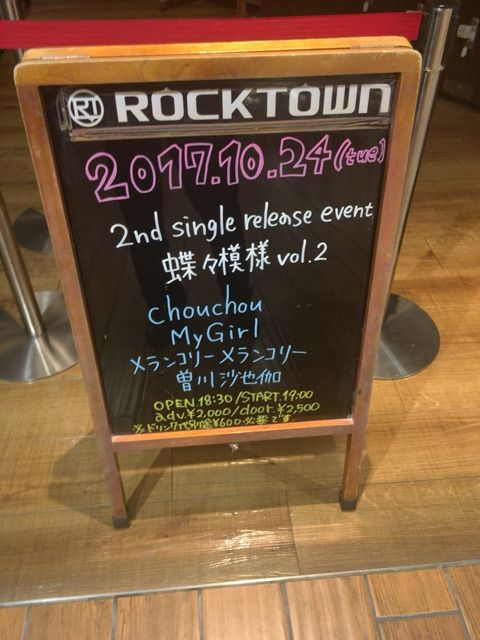 RT ROCKTOWN
2017.10.24(tue)
2nd single release event
蝶々模様 vol.2
chouchou
MyGirl
メランコリーメランコリー
曽川沙也伽
OPEN.18:30/START.19:00
adv.¥2,000/door.¥2,500
※ドリンク代別途¥600必要です。